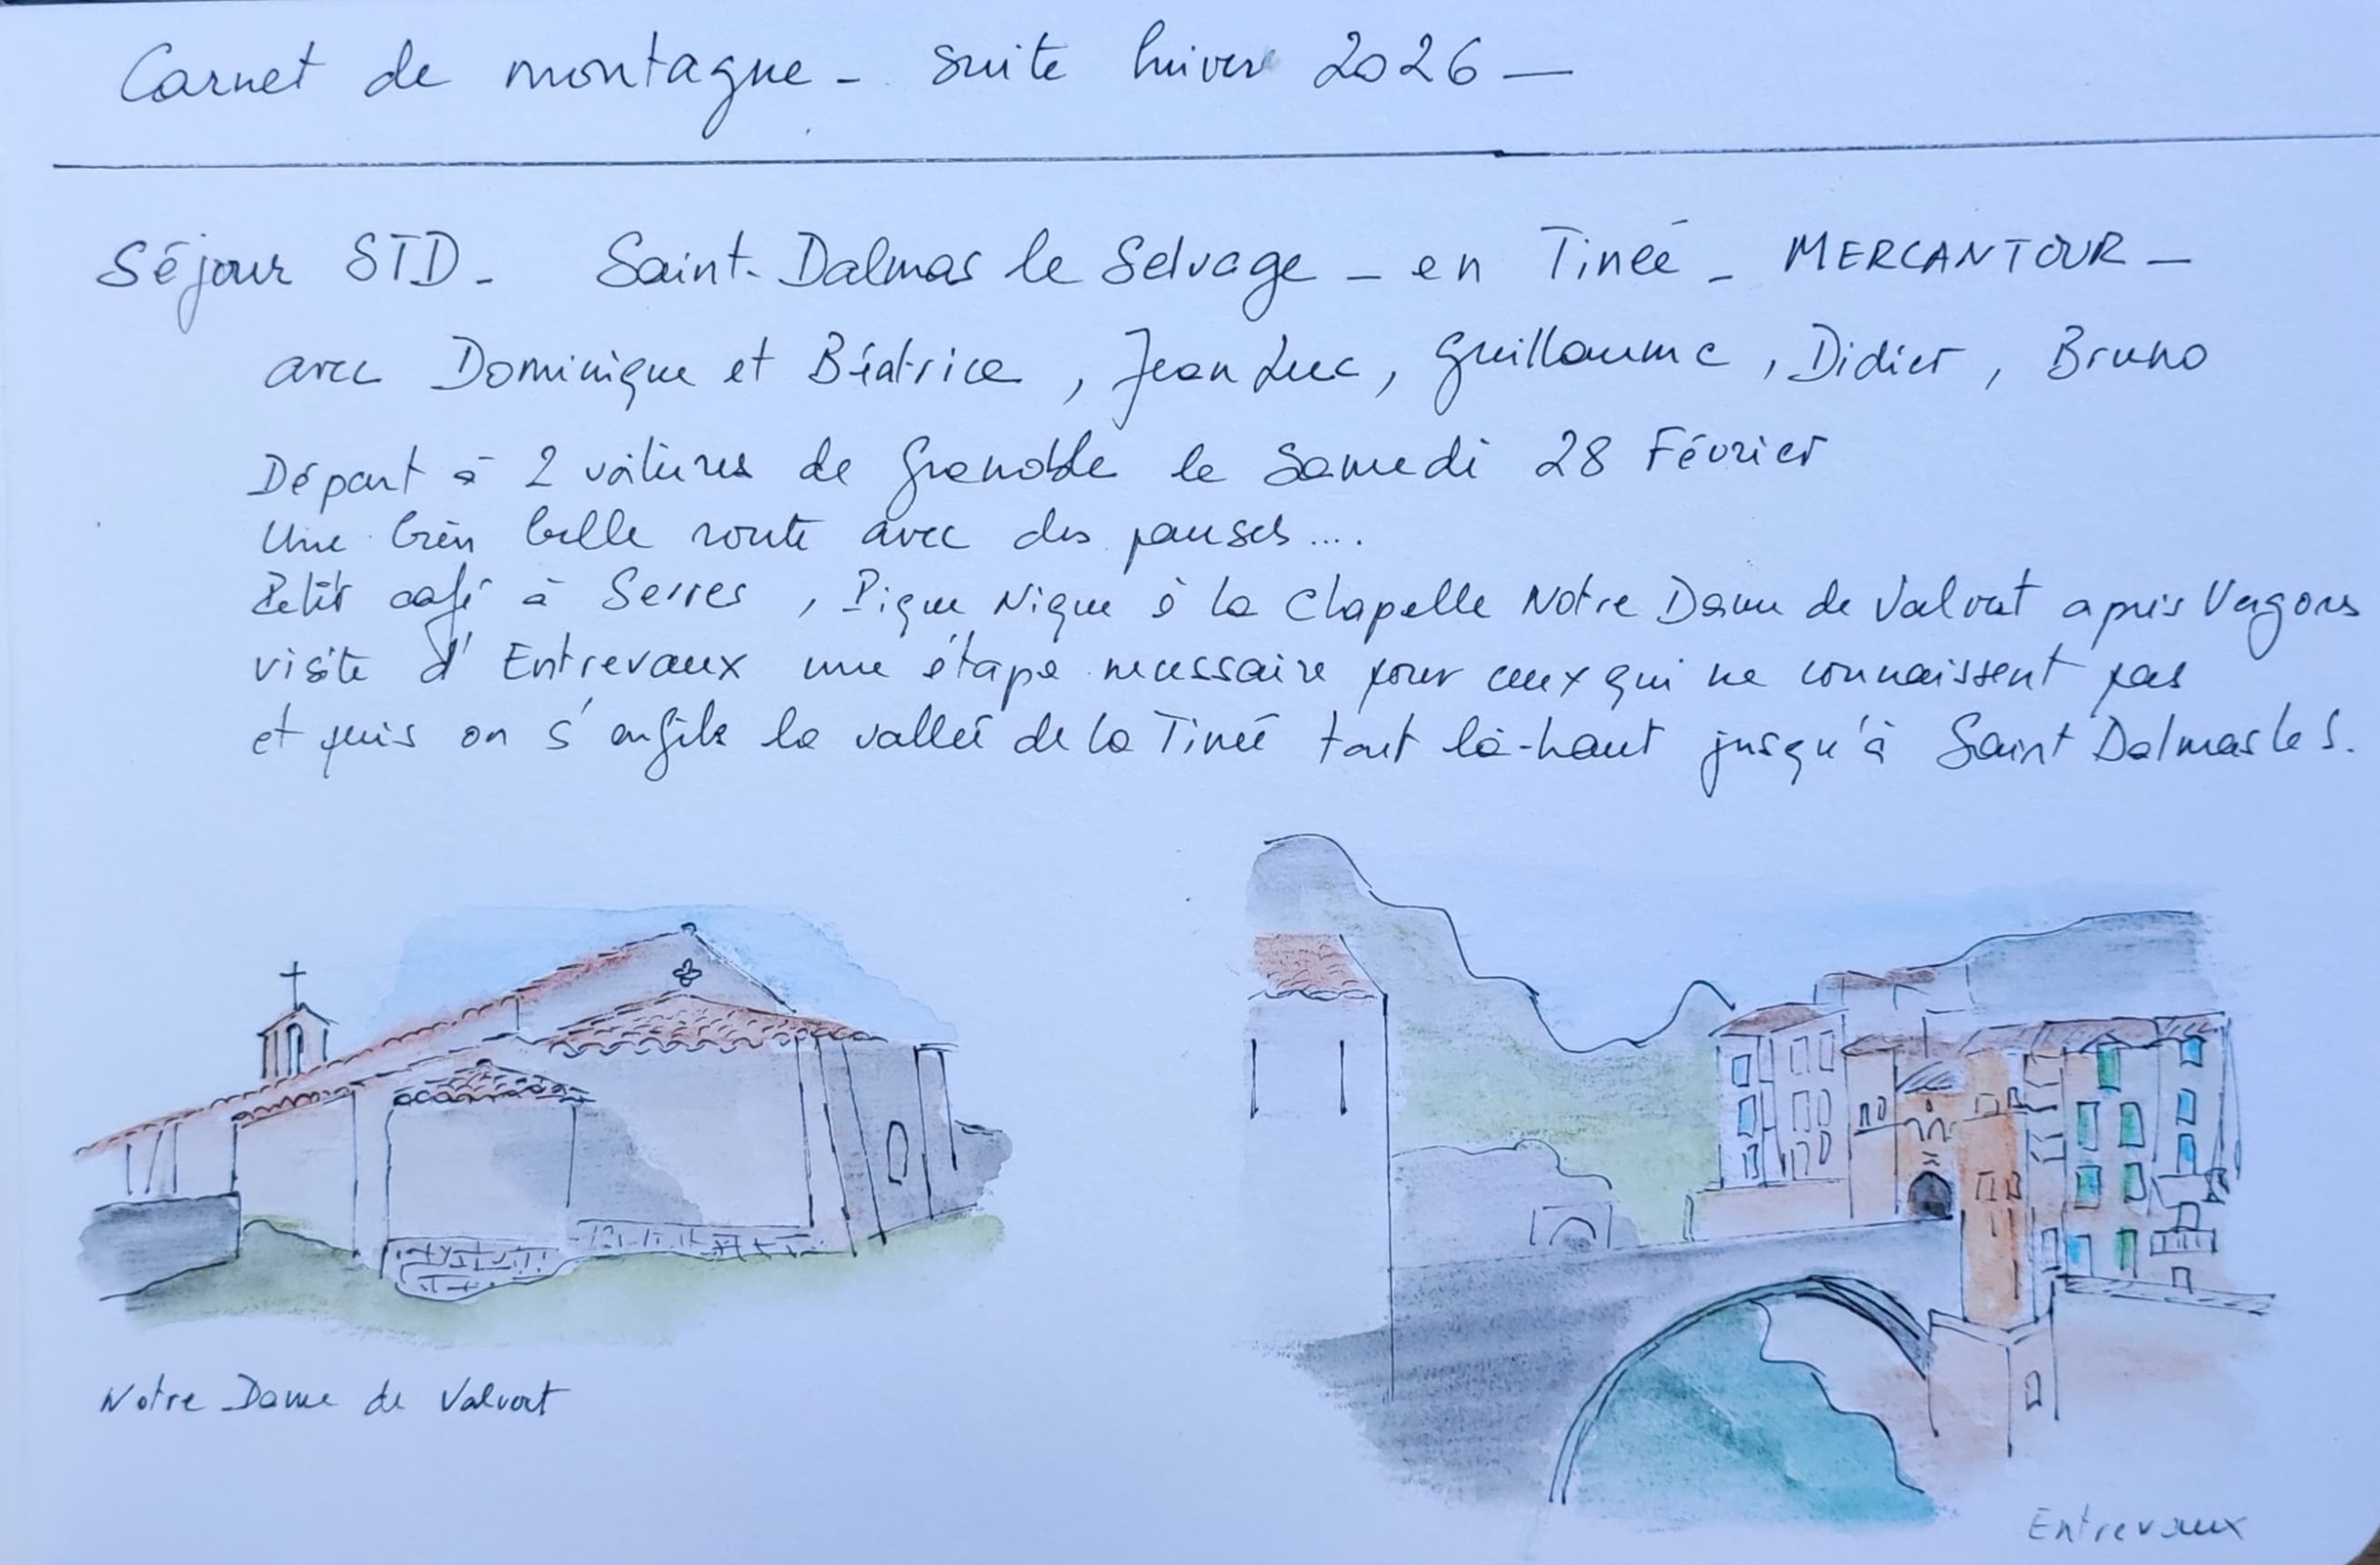 Carnet de montagne - suite hiver 2026 —
Séjour STD - Saint-Dalmas le Selvage - en Tinée - MERCANTOUR -
avec Dominique et Béatrice, Jean Luc, Guillaume, Didier, Bruno
Départ à 2 voitures de Grenoble le Samedi 28 Février
Une bien belle route avec des pauses....
Petit café à Serres, Pique Nique à la Chapelle Notre Dame de Valvert après Vergons
visite d'Entrevaux une étape necessaire pour ceux qui ne connaissent pas
et puis on s'enfile la vallée de la Tinée tout là-haut jusqu'à Saint Dalmas le S.
Notre Dame de Valvert
Entrevaux